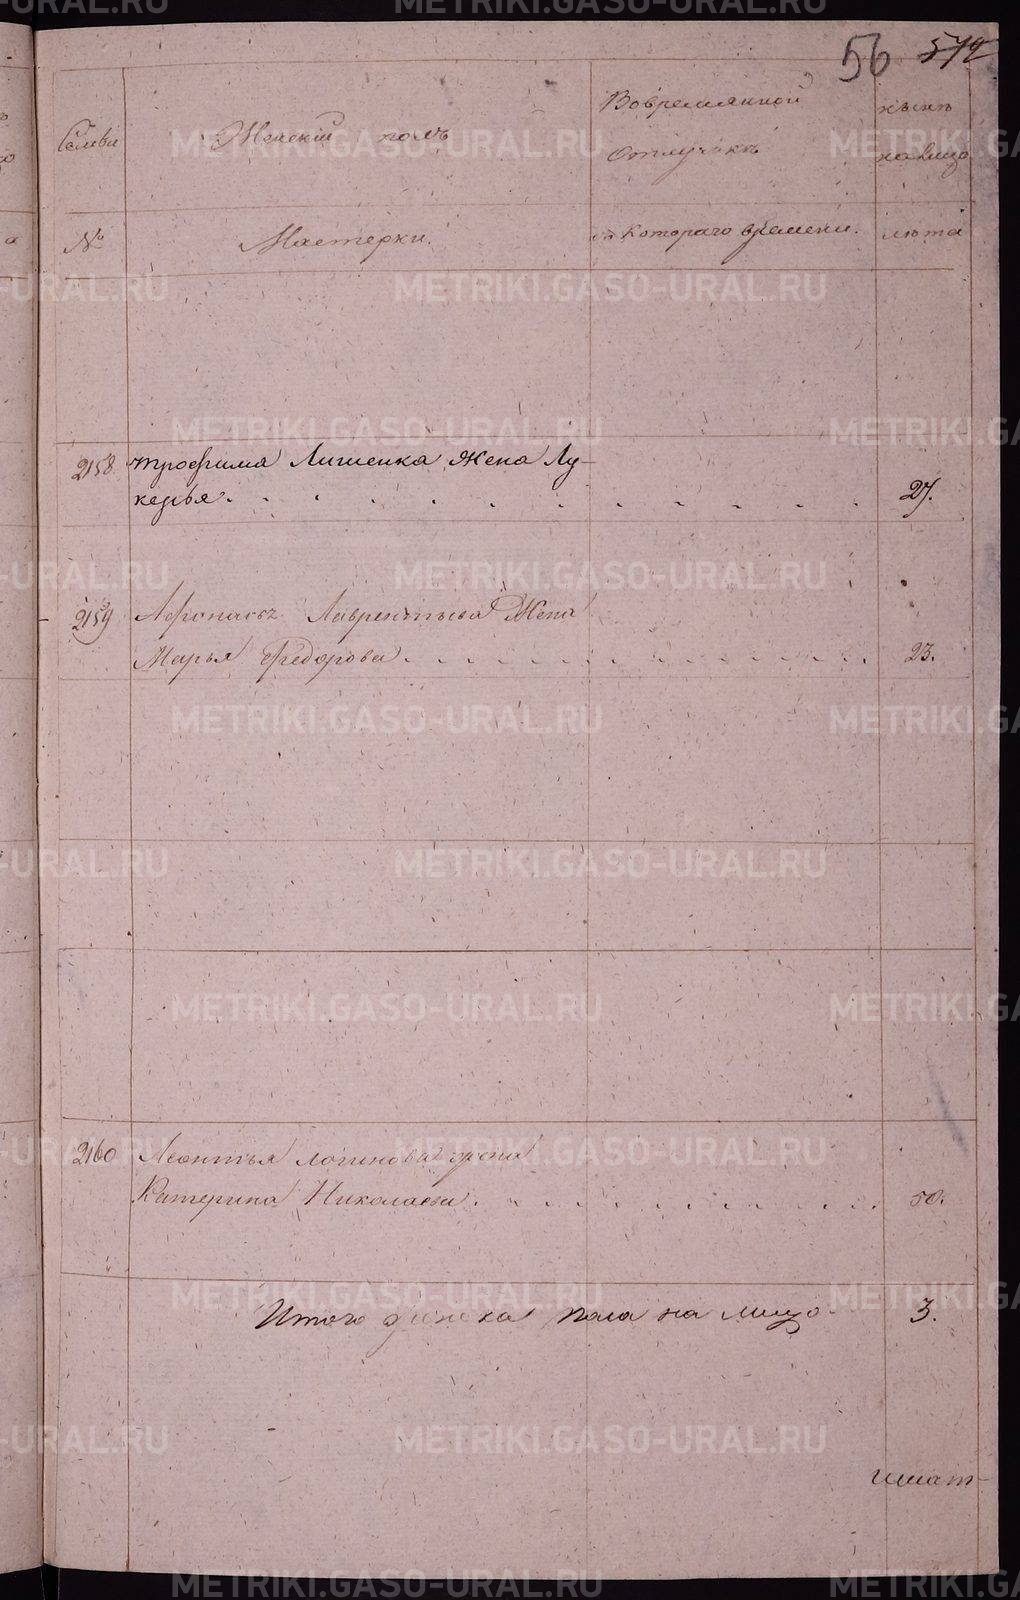 56 572
Семьи
Женский полъ
Во временной
отлучке
ныне
на лицо
№
Мастерки.
съ котораго времени.
лета
2158 Трофима Лигиенка жена Лу-
керья . . . . . . . . . . 27.
2159 Афонасъ Лаврентьева жена
Марья Федорова . . . . . . . . . . . . . 23.
2160 Леонтья Логинова жена
Катерина Николаева . . . . . . . . . . . . 50.
Итого женска пола на лицо 3.
METRIKI.GASO-URAL.RU